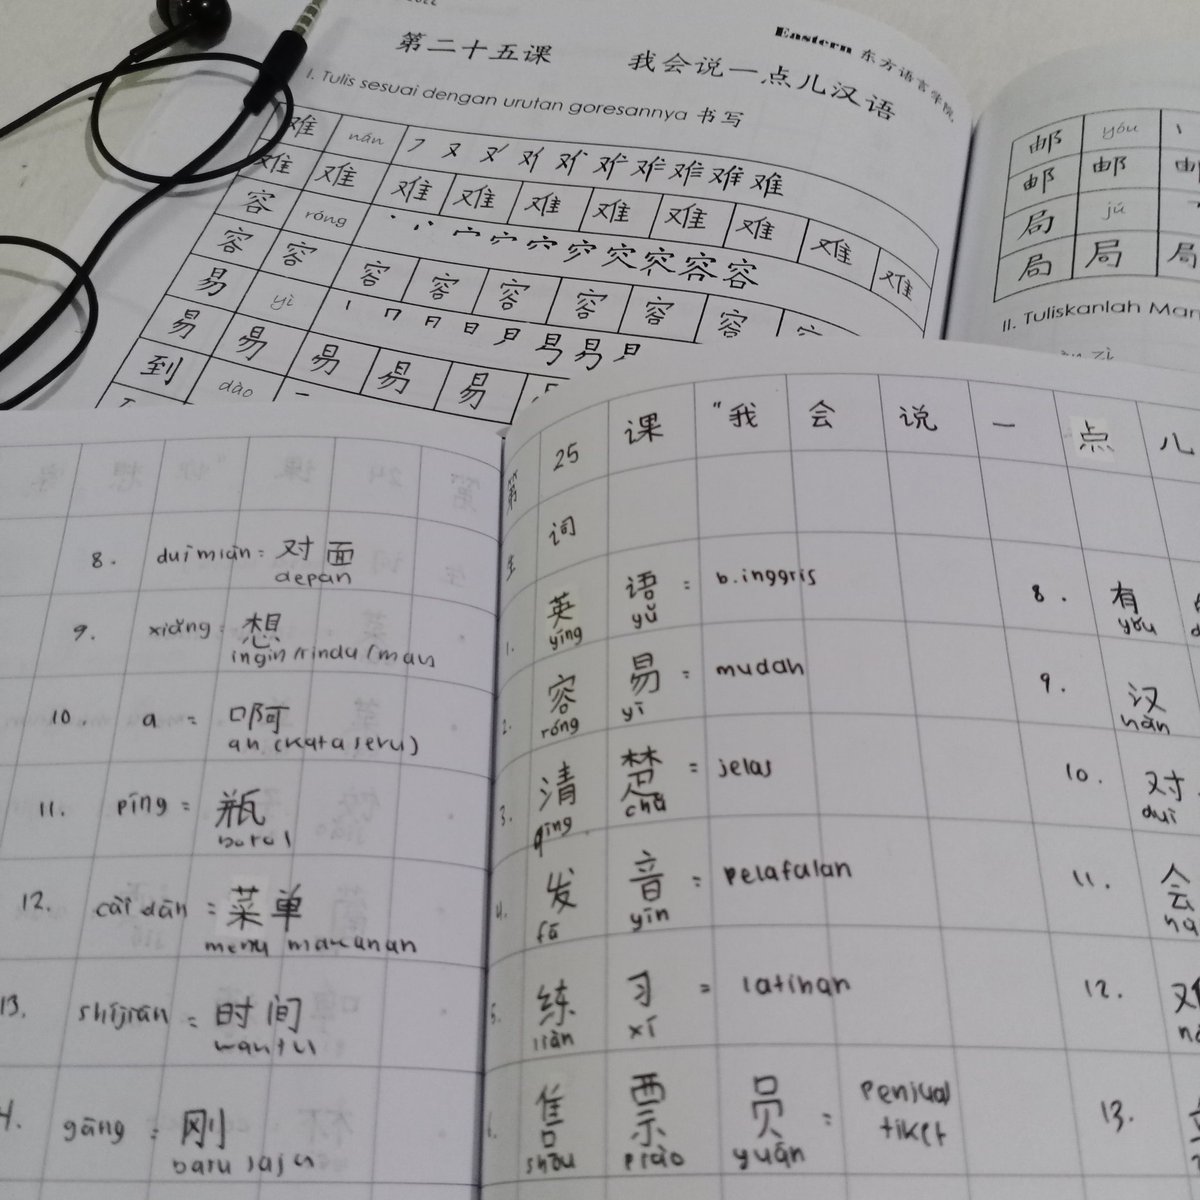 2022
Eastern 东方语言学院.
第二十五课 我会说一点儿汉语
I. Tulis sesuai dengan urutan goresannya 书写
难 nán
难 难 难 难 难 难 难 难 难 难
容 róng
容 容 容 容 容 容 容 容
易 yì
易 易 易 易 易
到 dào
邮 yóu
邮 邮 邮
局 jú
局 局 局
II. Tuliskanlah
8. duìmiàn: 对面
depan
9. xiǎng: 想
ingin/rindu/mau
10. a = 啊
ah (kata seru)
11. píng = 瓶
botol
12. càidān = 菜单
menu makanan
13. shíjiān = 时间
waktu
gāng = 刚
baru saja
第 25 课 "我 会 说 一 点 儿
生 词
1. 英语 = b.inggris
yīng yǔ
2. 容易 = mudah
róng yì
3. 清楚 = jelas
qīng chǔ
4. 发音 = pelafalan
fā yīn
5. 练习 = latihan
liàn xí
售票员 = penjual tiket
shòu piào yuán
8. 有
yǒu
9. 汉
hàn
10. 对
duì
11. 会
12.
13.